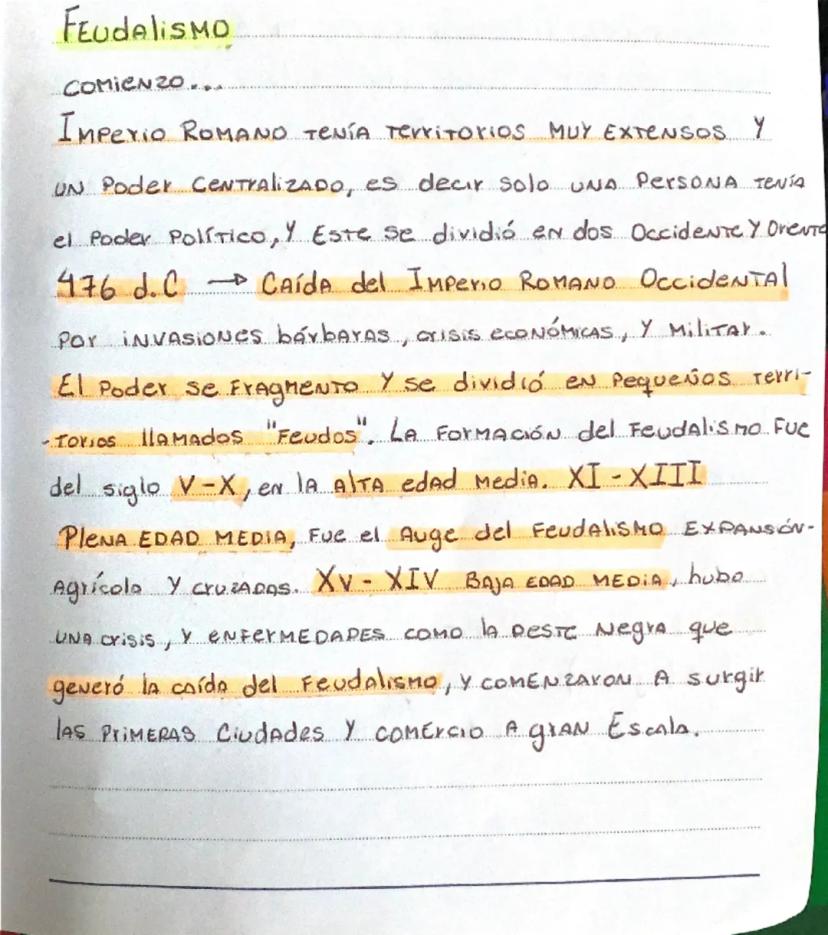 Feudalismo
comienzo...
Imperio Romano tenía territorios muy extensos y
un poder centralizado, es decir solo una persona tenía
el poder político, y este se dividió en dos Occidente y Oriente
476 d.C → Caída del Imperio Romano Occidental
por invasiones bárbaras, crisis económicas, y militar.
El poder se fragmento y se dividió en pequeños terri-
-torios llamados "Feudos". La formación del feudalismo fue
del siglo V-X, en la alta edad media. XI-XIII
Plena edad media, fue el auge del feudalismo expansión-
agrícola y cruzadas. XV-XIV Baja edad media, hubo
una crisis, y enfermedades como la peste negra que
generó la caída del feudalismo, y comenzaron a surgir
las primeras ciudades y comercio a gran escala.